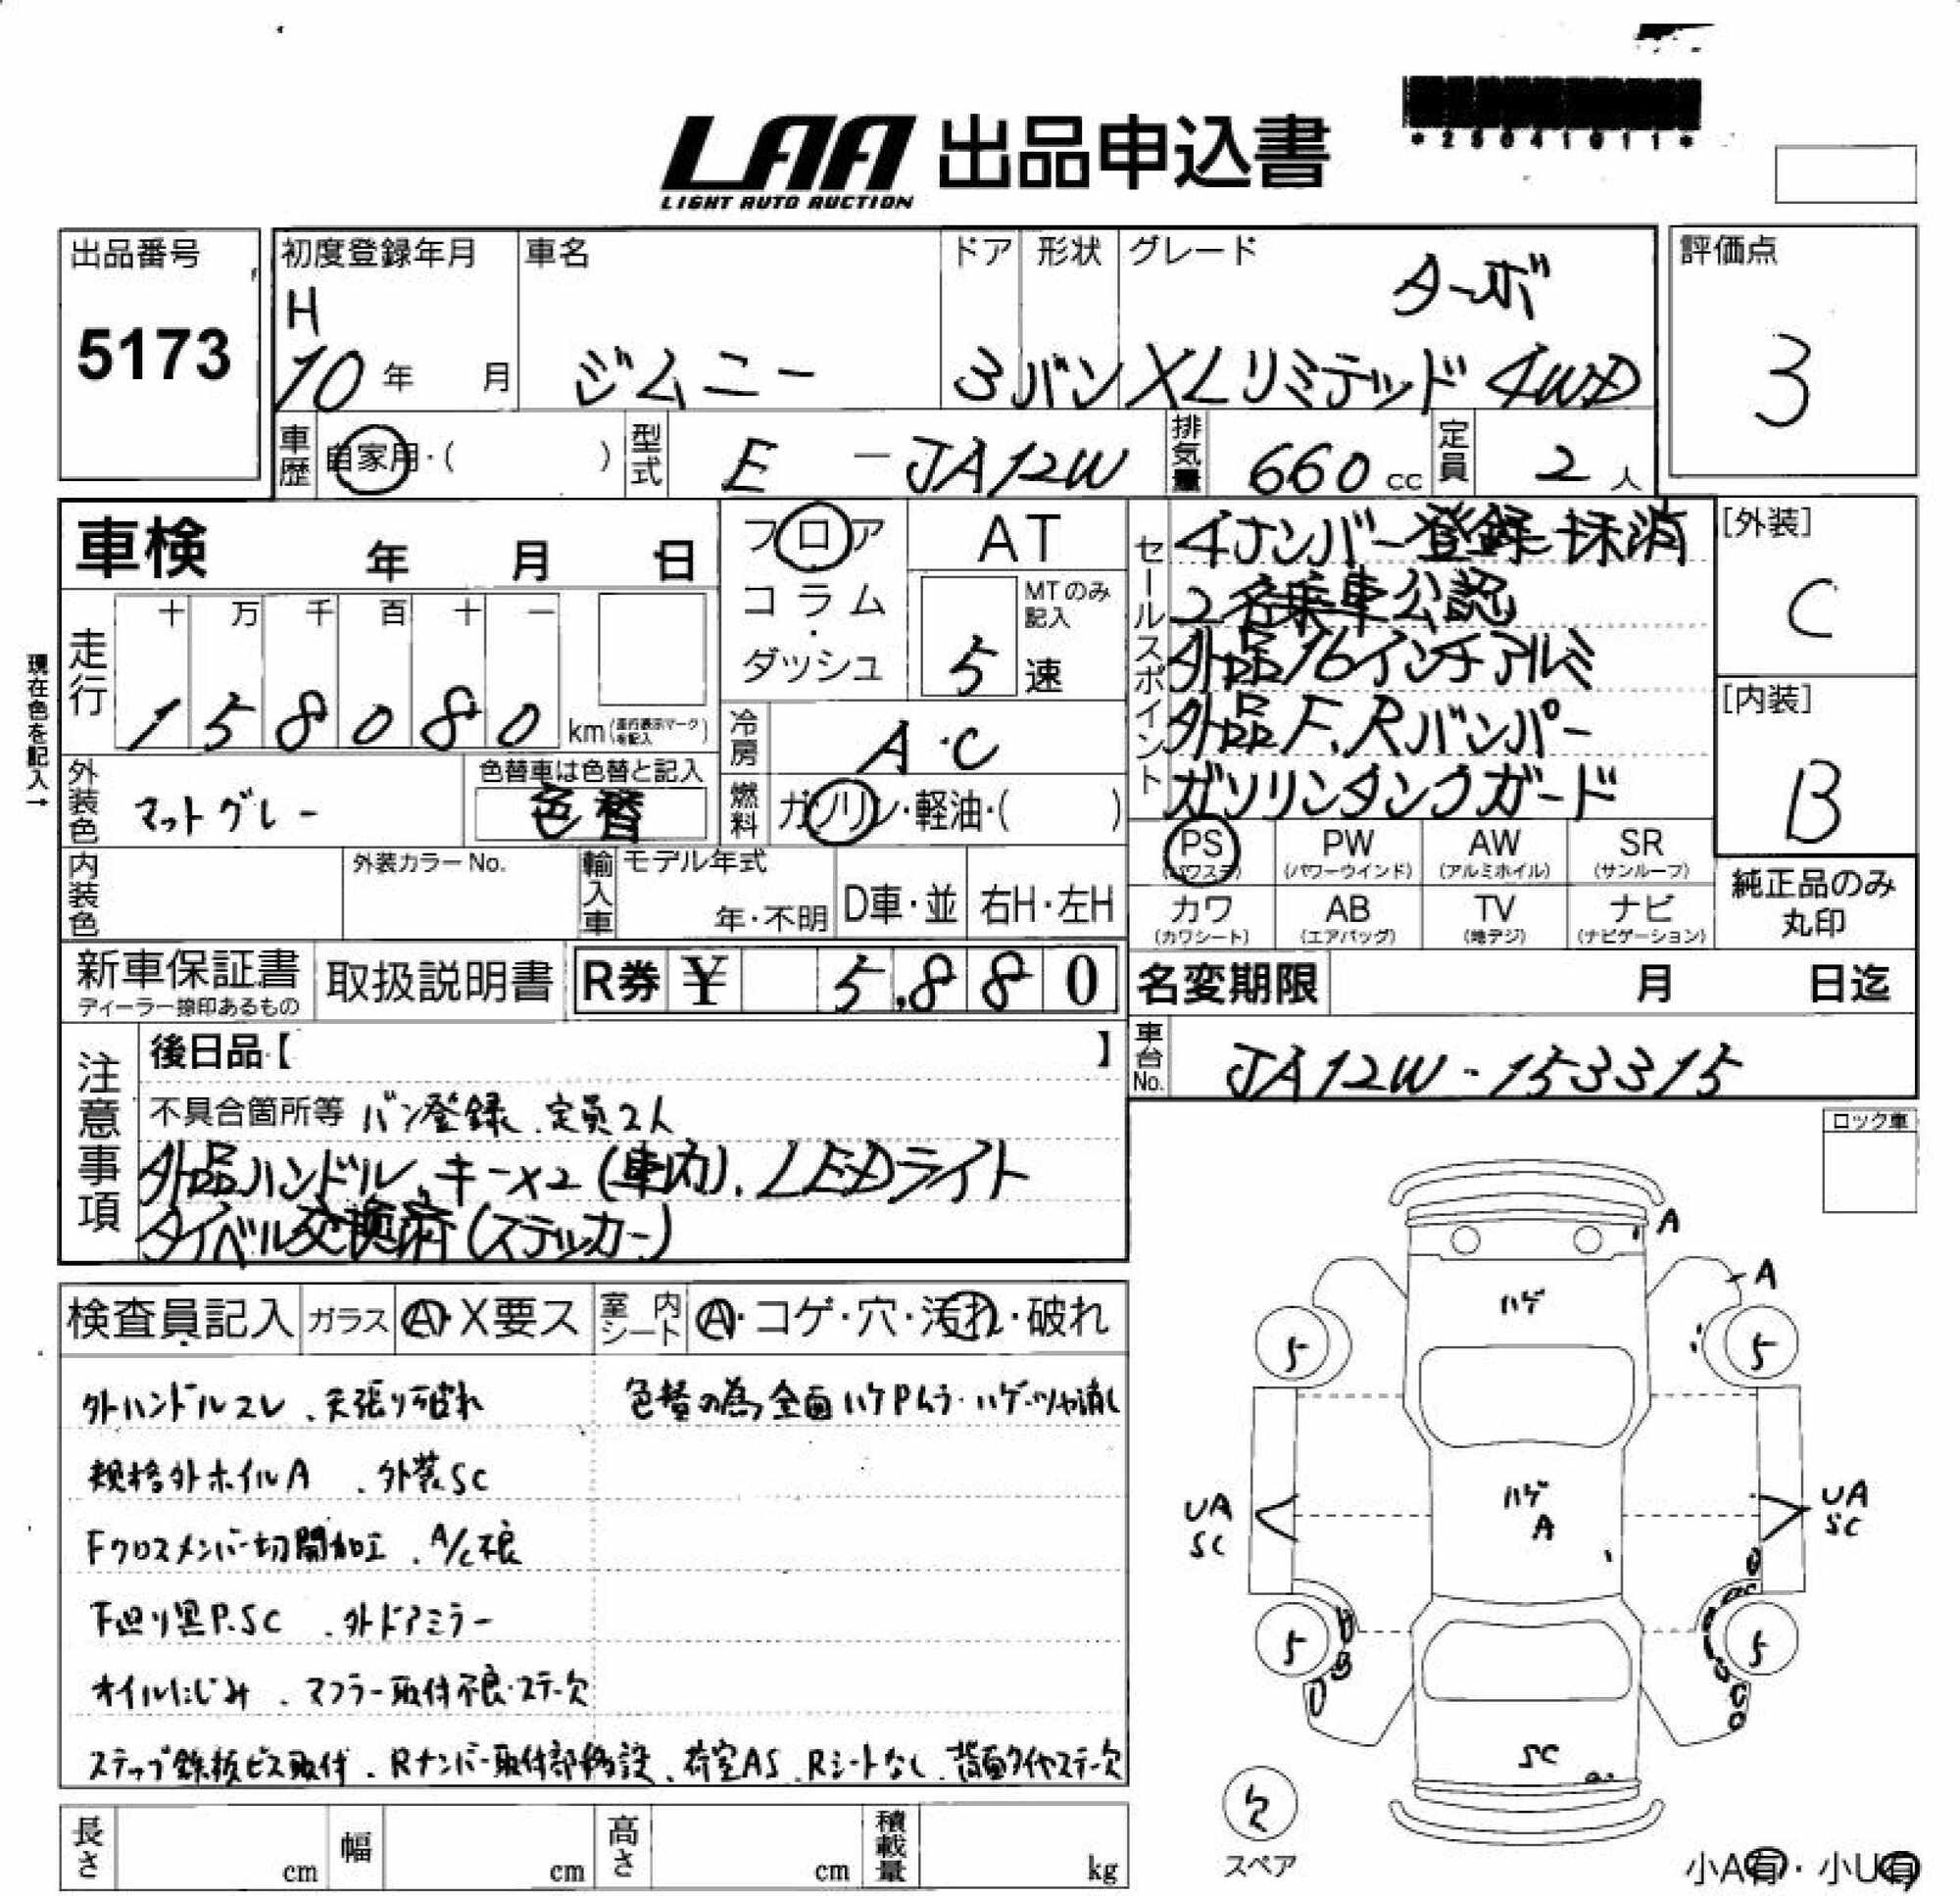 *25041011*
LAA 出品申込書
LIGHT AUTO AUCTION
出品番号
5173
初度登録年月
H
10年 月
車名
ジムニー
ドア
3
形状
バン
グレード
ターボ
XLリミテッド 4WD
評価点
3
車歴
自家用・( )
型式
E - JA12W
排気量
660 cc
定員
2 人
車検 年 月 日
フロア
コラム・
ダッシュ
AT
MTのみ記入
5 速
セールスポイント
4ナンバー登録抹消
2名乗車公認
外品16インチアルミ
外品F,Rバンパー
ガソリンタンクガード
[外装]
C
[内装]
B
現在色を記入→
走行
十 万 千 百 十 一
1 5 8 0 8 0 km(走行表示マークを記入)
冷房
A・C
外装色
マットグレー
色替車は色替と記入
色替
燃料
ガソリン・軽油・( )
PS (パワステ)
PW (パワーウインド)
AW (アルミホイル)
SR (サンルーフ)
カワ (カワシート)
AB (エアバッグ)
TV (地デジ)
ナビ (ナビゲーション)
純正品のみ
丸印
内装色
外装カラーNo.
輸入車
モデル年式
年・不明
D車・並
右H・左H
新車保証書
ディーラー捺印あるもの
取扱説明書
R券 ¥ 5,880
名変期限 月 日迄
車台No.
JA12W-153315
注意事項
後日品【 】
不具合箇所等 バン登録、定員2人
外品ハンドル、キー×2(車内)、LEDライト
タイベル交換済(ステッカー)
ロック車
検査員記入
ガラス
A・X要ス
室内シート
A・コゲ・穴・汚れ・破れ
外ハンドルスレ、天張り破れ
色替の為全面ハケPムラ・ハゲ・ツヤ消し
規格外ホイルA 、外装SC
Fクロスメンバー切開加工、A/C不良
下廻り黒P.SC 、外ドアミラー
オイルにじみ、マフラー取付不良・ステー欠
ステップ鉄板ビス取付、Rナンバー取付部移設、荷室AS、Rシートなし、背面タイヤステー欠
A
A
ハゲ
5
5
UA
SC
ハゲ
A
UA
SC
5
5
SC
欠
スペア
長さ cm
幅 cm
高さ cm
積載量 kg
小A有・小U有